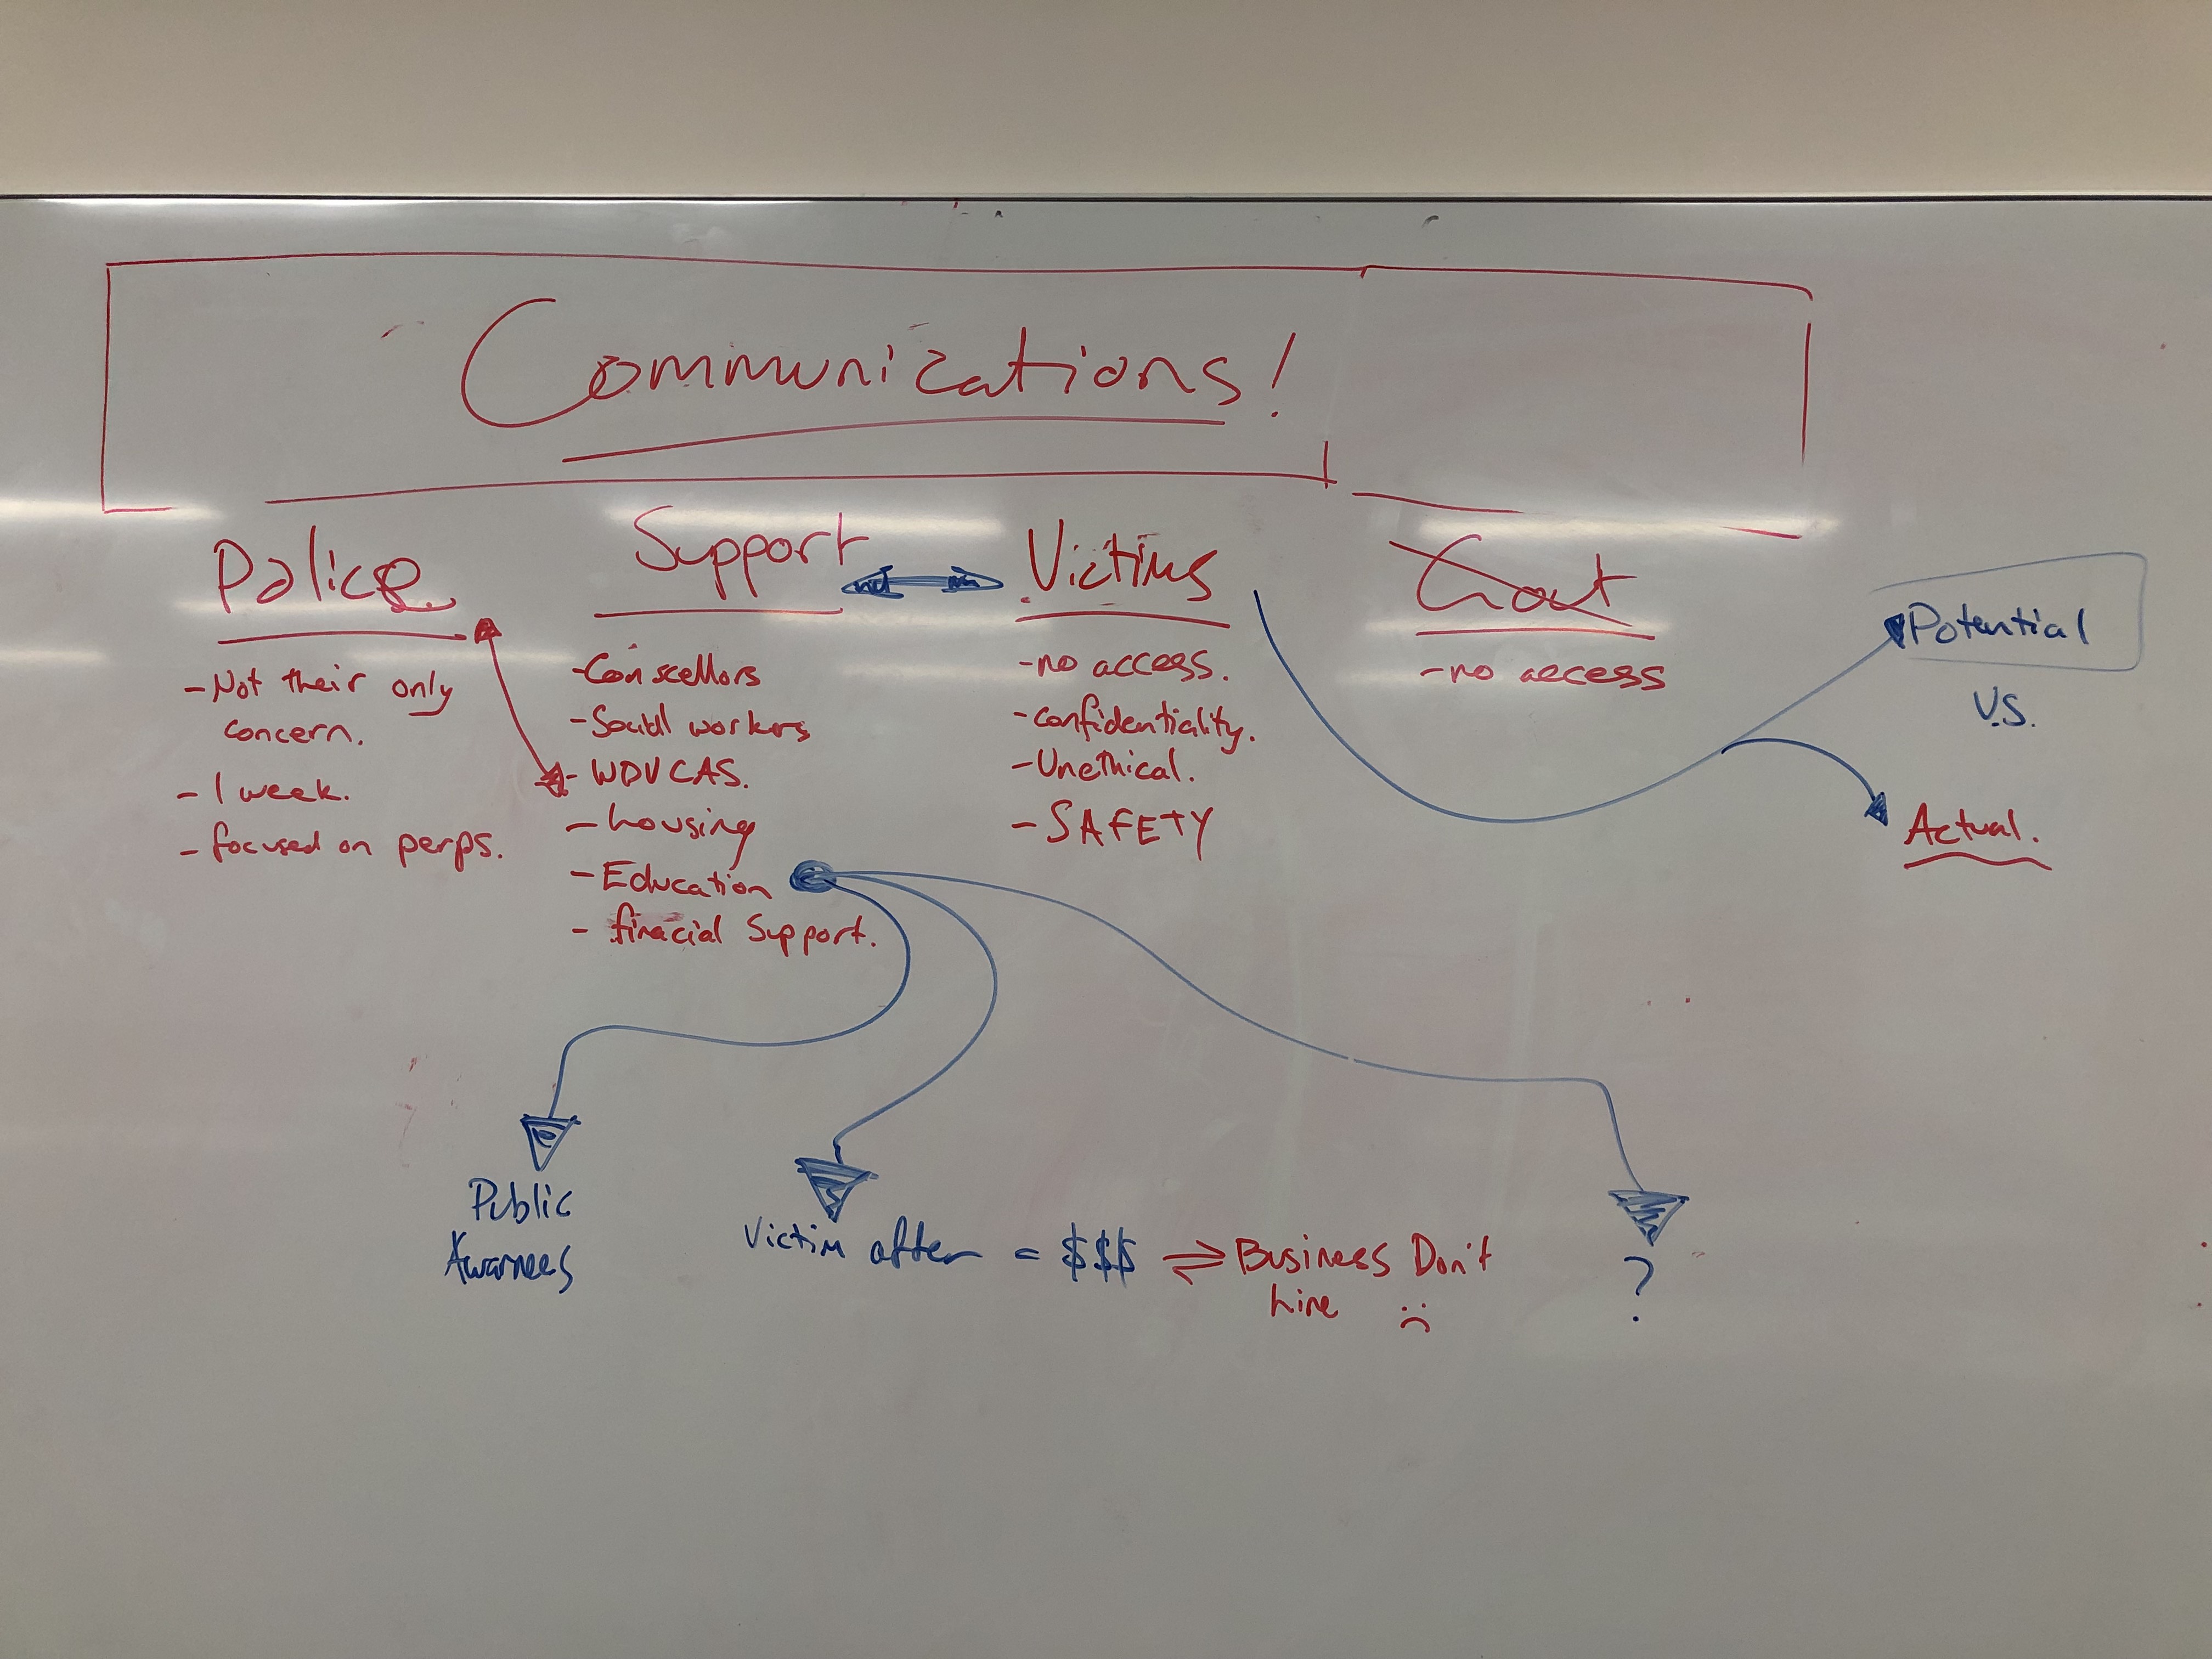 Communications!
Police
- Not their only
concern.
- 1 week.
- focused on perps.
Support
- Conscellors
- Social workers
- WDVCAS.
- housing
- Education
- finacial Support.
Victims
- no access.
- confidentiality.
- Unethical.
- SAFETY
Govt
- no access
Potential
V.S.
Actual.
Public
Awarnees
Victim after = $$$ ⇌ Business Don't
hire :(
?